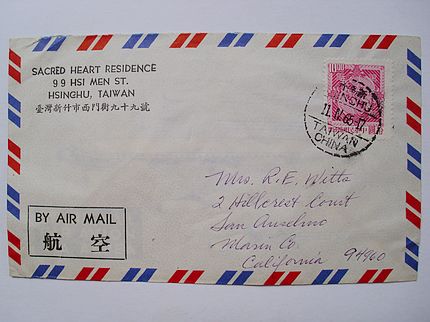 SACRED HEART RESIDENCE
99 HSI MEN ST.
HSINCHU, TAIWAN
臺灣新竹市西門街九十九號
1000
HSINCHU
TAIWAN
CHINA
Mrs. R.E. Witts
2 Hillcrest Court
San Anselmo
Marin Co.
California 94960
BY AIR MAIL
航空